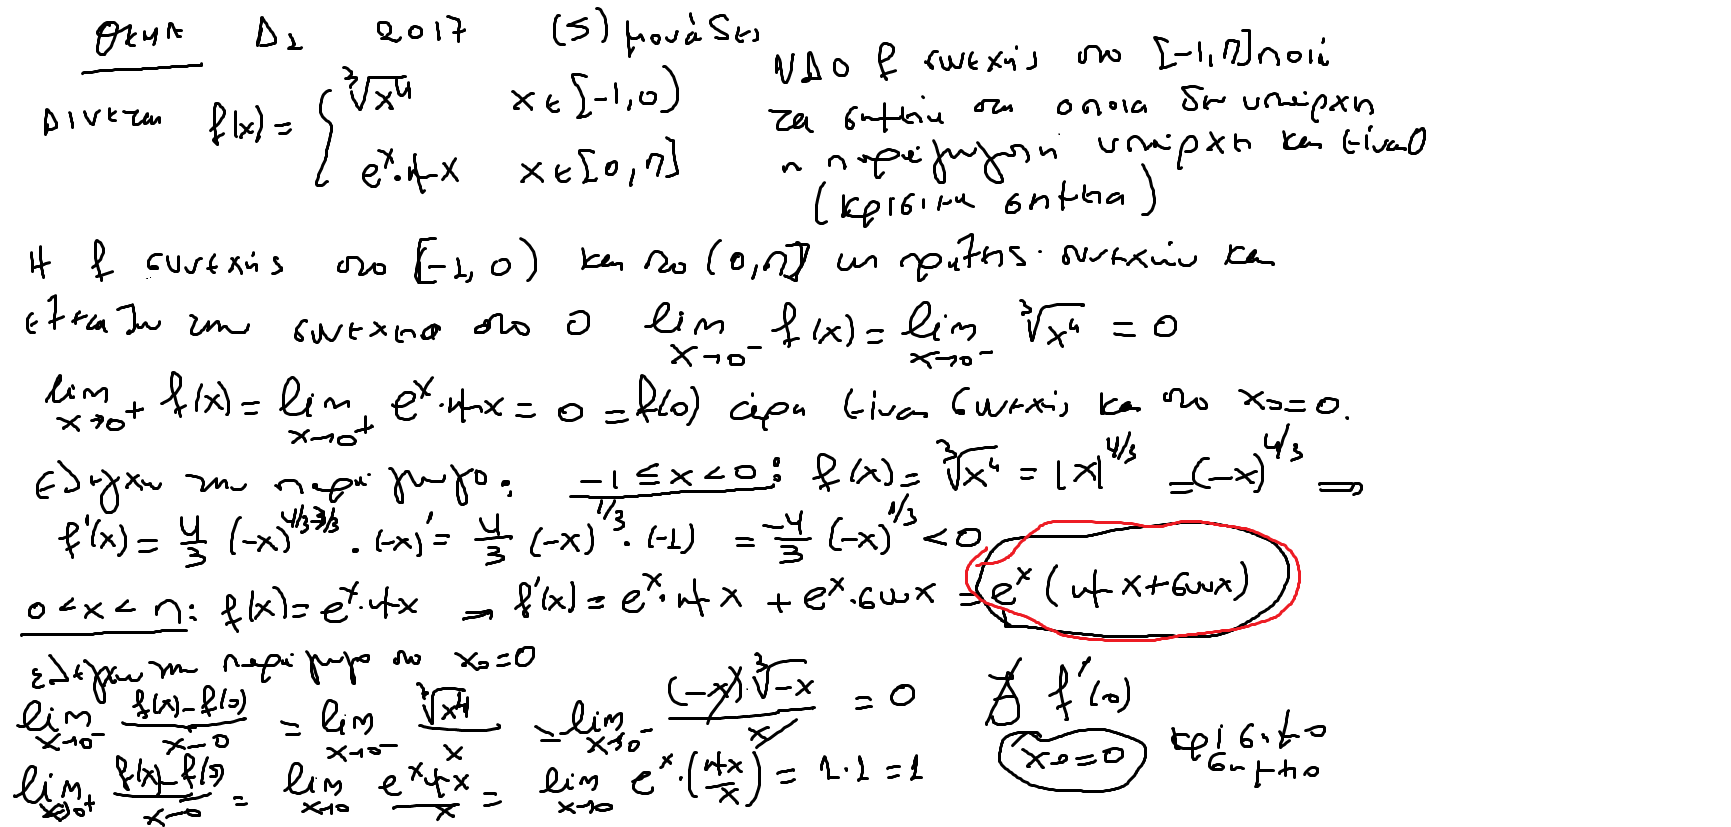 Θεμα Δ1 2017 (5) μονάδες
Δίνεται f(x) = { ∛x⁴ x ∈ [-1,0)
e^x·ημx x ∈ [0,π]
ΝΔΟ f συνεχής στο [-1,π] ποιά
τα σημεία στα οποια δεν υπάρχει
η παράγωγος ή υπάρχει και είναι 0
(κρίσιμα σημεια)
Η f συνεχής στο [-1,0) και στο (0,π] ως πράξεις συνεχών και
εξεταζω την συνεχεια στο 0 lim x→0⁻ f(x) = lim x→0⁻ ∛x⁴ = 0
lim x→0⁺ f(x) = lim x→0⁺ e^x·ημx = 0 = f(0) άρα είναι συνεχής και στο x₀=0.
Ελεγχω την παράγωγο: -1 ≤ x < 0: f(x) = ∛x⁴ = |x|^4/3 = (-x)^4/3 ⇒
f'(x) = 4/3 (-x)^4/3-3/3 · (-x)' = 4/3 (-x)^1/3 · (-1) = -4/3 (-x)^1/3 < 0
0 < x < π: f(x) = e^x·ημx ⇒ f'(x) = e^x·ημx + e^x·συνx = e^x (ημx+συνx)
ελεγχω την παράγωγο στο x₀=0
lim x→0⁻ f(x)-f(0)/x-0 = lim x→0⁻ ∛x⁴/x = lim x→0⁻ (-x)·∛-x/x = 0 ∄ f'(0)
lim x→0⁺ f(x)-f(0)/x-0 = lim x→0 e^xημx/x = lim x→0 e^x·(ημx/x) = 1·1 = 1 x₀=0 κρίσιμο σημειο